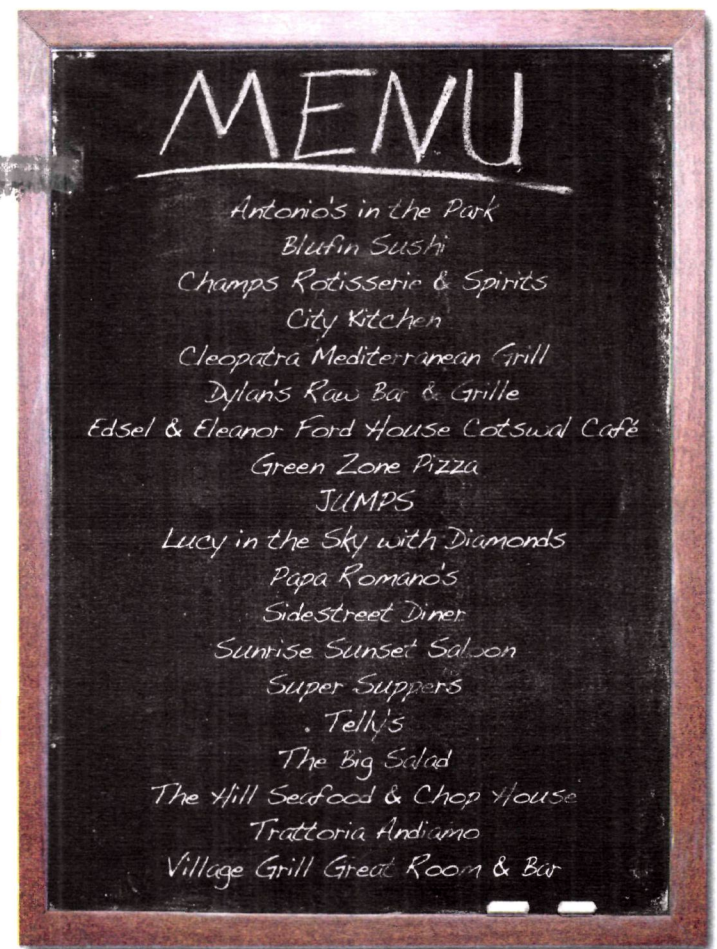 MENU
Antonio's in the Park
Blufin Sushi
Champs Rotisserie & Spirits
City Kitchen
Cleopatra Mediterranean Grill
Dylan's Raw Bar & Grille
Edsel & Eleanor Ford House Cotswal Café
Green Zone Pizza
JUMPS
Lucy in the Sky with Diamonds
Papa Romano's
Sidestreet Diner
Sunrise Sunset Saloon
Super Suppers
Telly's
The Big Salad
The Hill Seafood & Chop House
Trattoria Andiamo
Village Grill Great Room & Bar